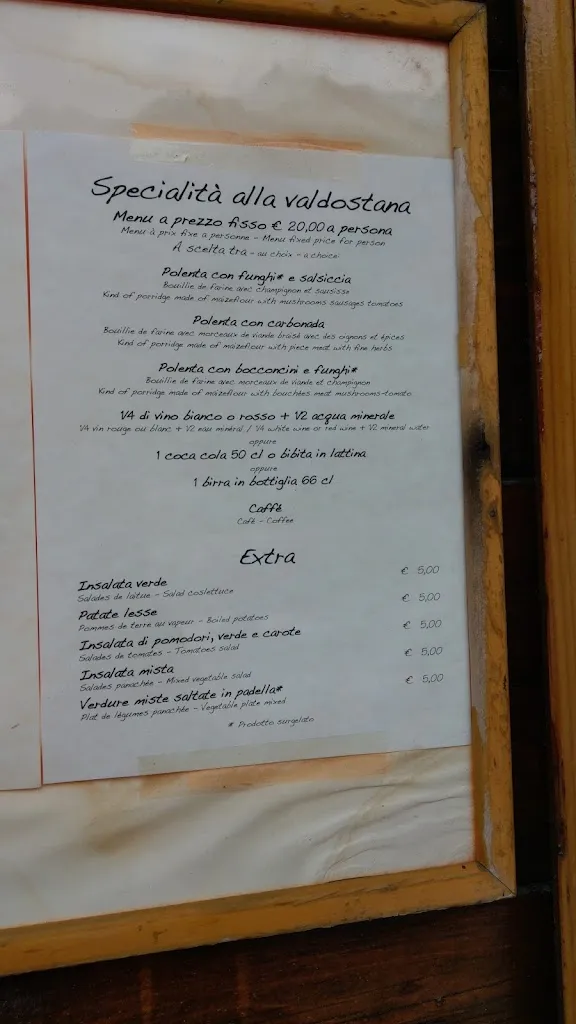 Specialità alla valdostana
Menu a prezzo fisso € 20,00 a persona
Menu à prix fixe a personne - Menu fixed price for person
A scelta tra - au choix - a choice:
Polenta con funghi* e salsiccia
Bouillie de farine avec champignon et sausisse
Kind of porridge made of maizeflour with mushrooms sausages tomatoes
Polenta con carbonada
Bouillie de farine avec morceaux de viande braisé avec des oignons et épices
Kind of porridge made of maizeflour with piece meat with fine herbs
Polenta con bocconcini e funghi*
Bouillie de farine avec morceaux de viande et champignon
Kind of porridge made of maizeflour with bouchées meat mushrooms-tomato
V4 di vino bianco o rosso + V2 acqua minerale
V4 vin rouge ou blanc + V2 eau minéral / V4 white wine or red wine + V2 mineral water
oppure
1 coca cola 50 cl o bibita in lattina
oppure
1 birra in bottiglia 66 cl
Caffè
Café - Coffee
Extra
Insalata verde € 5,00
Salades de laitue - Salad coslettuce
Patate lesse € 5,00
Pommes de terre au vapeur - Boiled potatoes
Insalata di pomodori, verde e carote € 5,00
Salades de tomates - Tomatoes salad
Insalata mista € 5,00
Salades panachée - Mixed vegetable salad
Verdure miste saltate in padella* € 5,00
Plat de légumes panachée - Vegetable plate mixed
* Prodotto surgelato